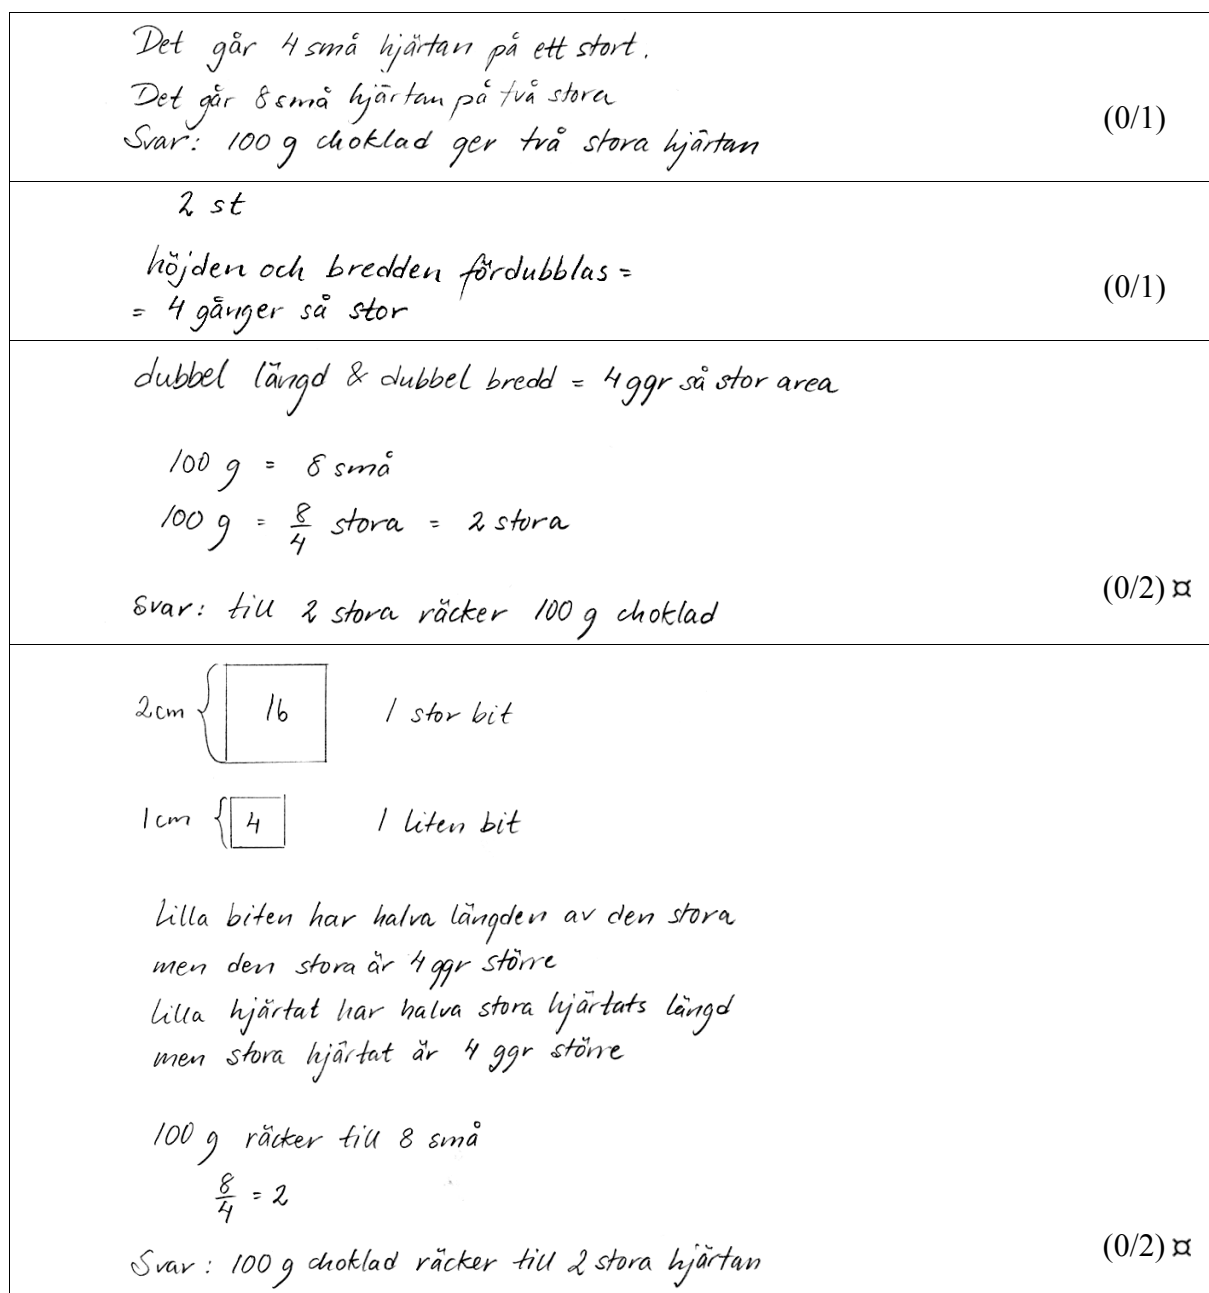 Det går 4 små hjärtan på ett stort.
Det går 8 små hjärtan på två stora
(0/1)
Svar: 100 g choklad ger två stora hjärtan
2 st
höjden och bredden fördubblas =
(0/1)
= 4 gånger så stor
dubbel längd & dubbel bredd = 4 ggr så stor area
100 g = 8 små
100 g = 8/4 stora = 2 stora
(0/2) ¤
Svar: till 2 stora räcker 100 g choklad
2 cm { 16 1 stor bit
1 cm { 4 1 liten bit
Lilla biten har halva längden av den stora
men den stora är 4 ggr större
Lilla hjärtat har halva stora hjärtats längd
men stora hjärtat är 4 ggr större
100 g räcker till 8 små
8/4 = 2
(0/2) ¤
Svar: 100 g choklad räcker till 2 stora hjärtan